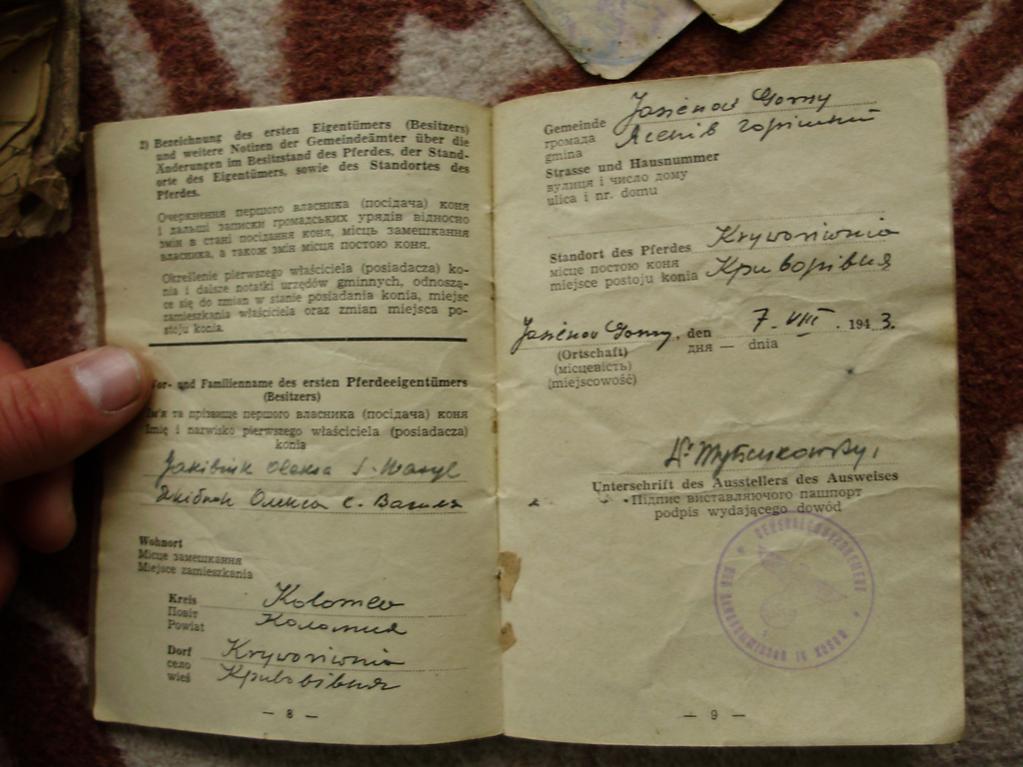 2) Bezeichnung des ersten Eigentümers (Besitzers)
und weitere Notizen der Gemeindeämter über die
Änderungen im Besitzstand des Pferdes, der Stand-
orte des Eigentümers, sowie des Standortes des
Pferdes.
Очеркнення першого власника (посідача) коня
і дальші записки громадських урядів відносно
змін в стані посідання коня, місць замешкання
власника, а також змін місця постою коня.
Określenie pierwszego właściciela (posiadacza) ko-
nia i dalsze notatki urzędów gminnych, odnoszą-
ce się do zmian w stanie posiadania konia, miejsc
zamieszkania właściciela oraz zmian miejsca po-
stoju konia.
Vor- und Familienname des ersten Pferdeeigentümers
(Besitzers)
Ім'я та прізвище першого власника (посідача) коня
Imię i nazwisko pierwszego właściciela (posiadacza)
konia
Jakibiuk Oleksa s. Wasyl
Якібюк Олекса с. Василя
Wohnort
Місце замешкання
Miejsce zamieszkania
Kreis Kolomea
Повіт Коломия
Powiat
Dorf Kryworiwnia
село Криворівня
wieś
— 8 —
Gemeinde Jasienow Gorny
громада Ясенів горішний
gmina
Strasse und Hausnummer
вулиця і число дому
ulica i nr. domu
Standort des Pferdes Kryworiwnia
місце постою коня Криворівня
miejsce postoju konia
Jasienow Gorny, den 7. VIII. 1943.
(Ortschaft) дня — dnia
(місцевість)
(miejscowość)
Unterschrift des Ausstellers des Ausweises
Підпис виставляючого пашпорт
podpis wydającego dowód
GENERALGOUVERNEMENT
— 9 —